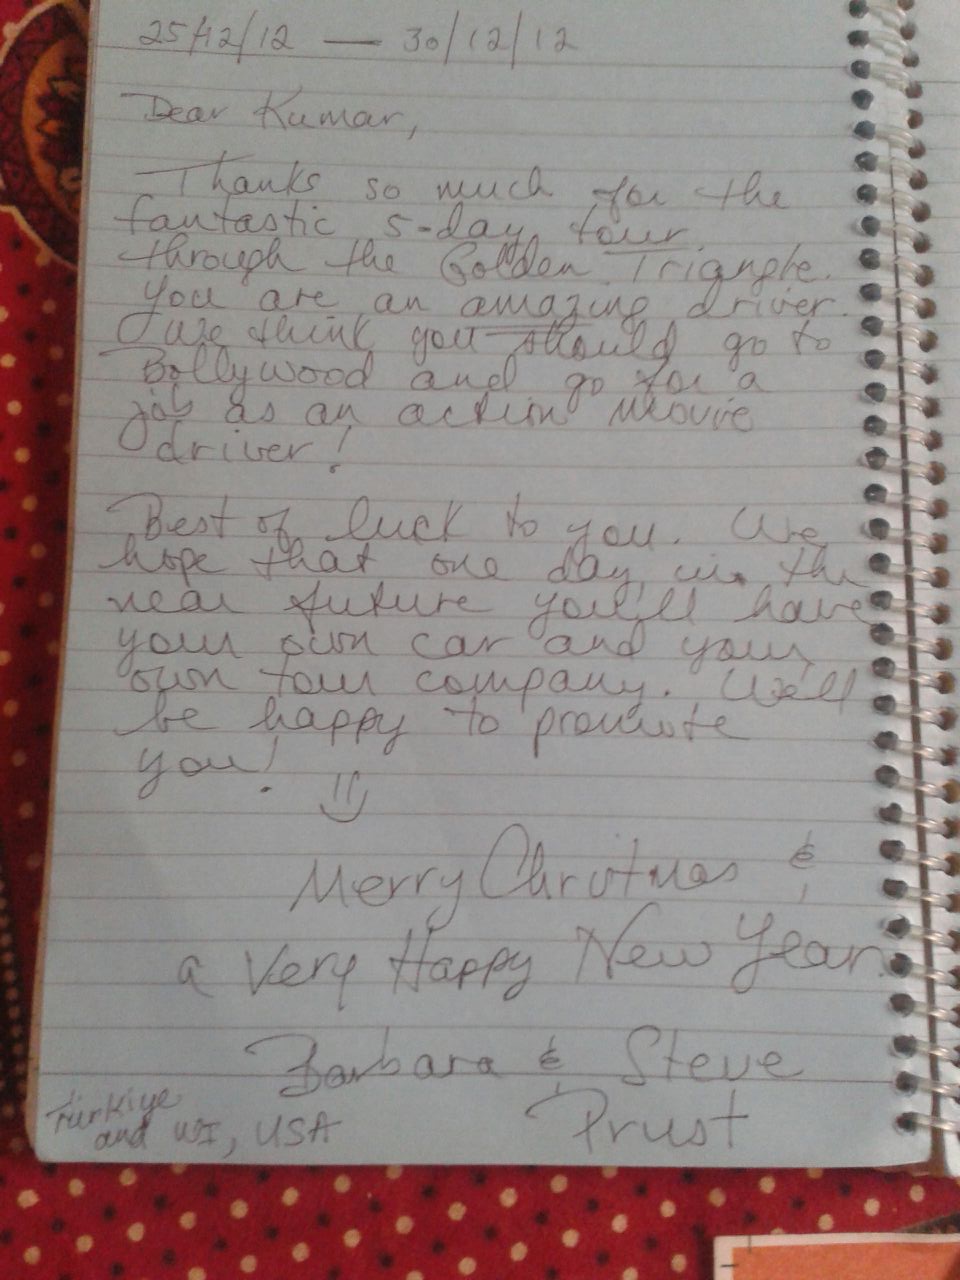 25/12/12 — 30/12/12
Dear Kumar,
Thanks so much for the
fantastic 5-day tour
through the Golden Triangle.
You are an amazing driver.
We think you should go to
Bollywood and go for a
job as an action movie
driver!
Best of luck to you. We
hope that one day in the
near future you'll have
your own car and your
own tour company. We'll
be happy to promote
you!
Merry Christmas &
a Very Happy New Year.
Barbara & Steve
Prust
Türkiye
and WI, USA